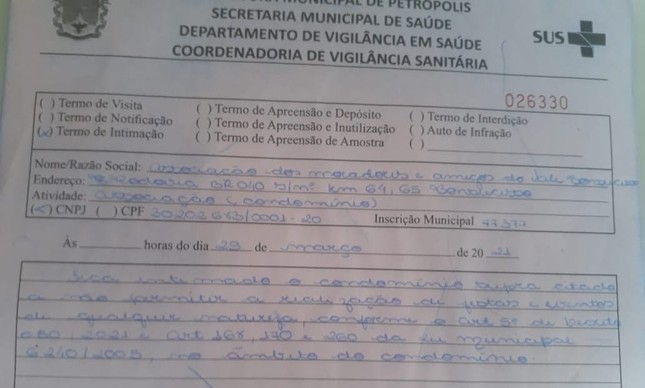 MUNICIPAL DE PETRÓPOLIS
SECRETARIA MUNICIPAL DE SAÚDE
DEPARTAMENTO DE VIGILÂNCIA EM SAÚDE
COORDENADORIA DE VIGILÂNCIA SANITÁRIA
SUS
026330
( ) Termo de Visita ( ) Termo de Apreensão e Depósito ( ) Termo de Interdição
( ) Termo de Notificação ( ) Termo de Apreensão e Inutilização ( ) Auto de Infração
(x) Termo de Intimação ( ) Termo de Apreensão de Amostra ( )
Nome/Razão Social: Associação dos moradores e amigos do Vale Bonsucesso
Endereço: Rodovia BR040 s/nº km 64,65 Bonsucesso
Atividade: Associação (condomínio)
(x) CNPJ ( ) CPF 30202673/0001-20 Inscrição Municipal 77377
Às horas do dia 29 de março de 20 21
Fica intimado o condomínio supra citado
a não permitir a realização de festas e eventos
de qualquer natureza, conforme o art 5º de
2021 e art 168, 170 e 260 da lei municipal
6240/2005, no âmbito do condomínio.